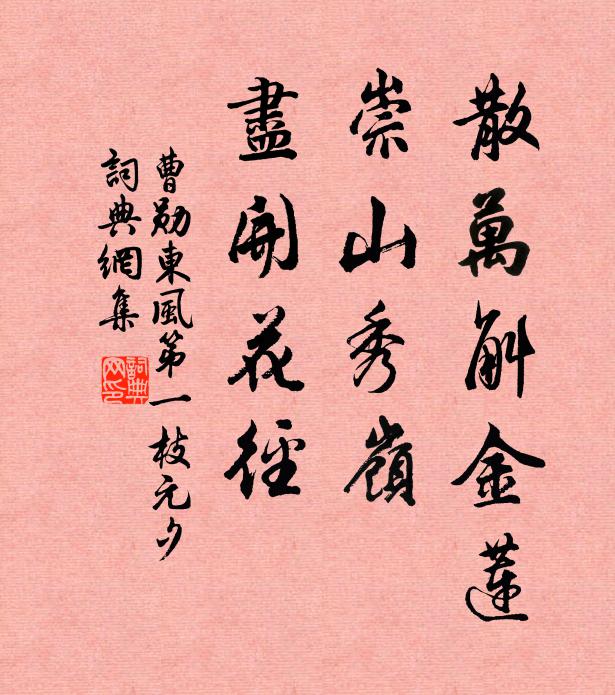 散萬斛金蓮
崇山秀嶺
盡開花徑
曹勛東風第一枝元夕
詞典網集
詞典網印